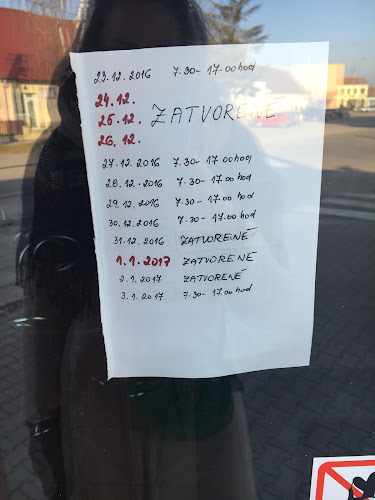 23.12.2016 7.30-17.00hod
24.12.
25.12. ZATVORENÉ
26.12.
27.12.2016 7.30-17.00hod
28.12.2016 7.30-17.00hod
29.12.2016 7.30-17.00hod
30.12.2016 7.30-17.00hod
31.12.2016 ZATVORENÉ
1.1.2017 ZATVORENÉ
2.1.2017 ZATVORENÉ
3.1.2017 7.30-17.00hod